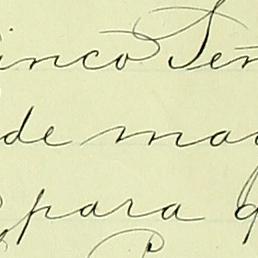 inco Señ
de ma
para q